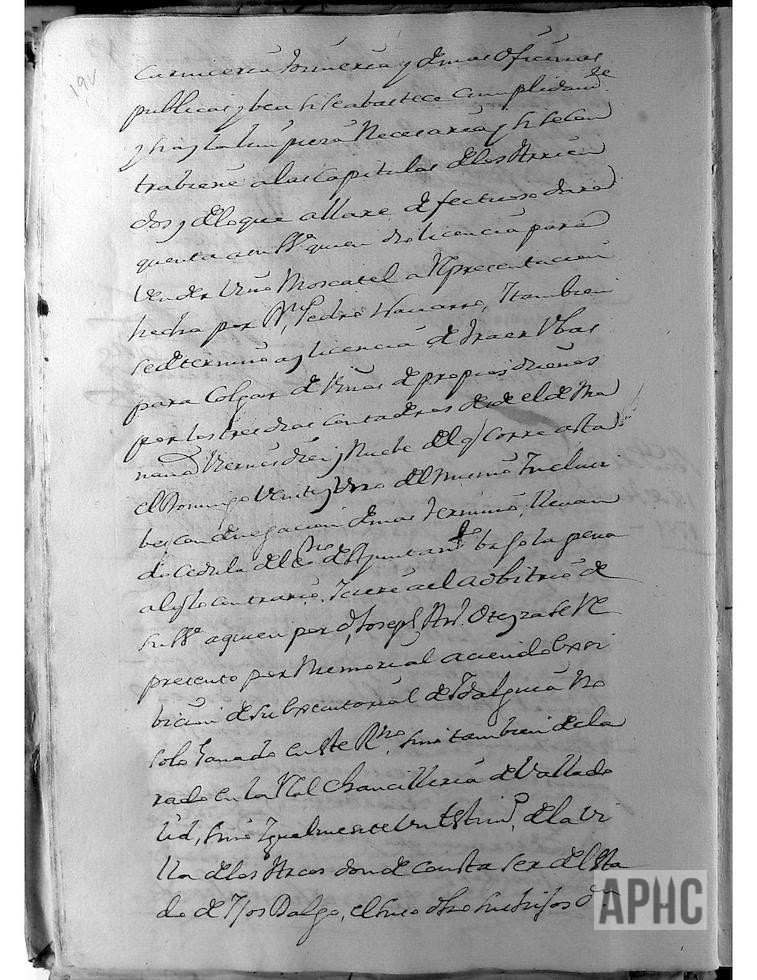 19v
carniceria tonineria y demas oficinas
publicas y bea si se abastece cumplidamte
y hay la limpieza Necesaria y si se con
trabiene a los capitulos de los Arrien
dos y de lo que allare defectuoso dara
quenta a su Sª quien dio licencia para
Vender Vino Moscatel a Representacion
hecha por Dn Pedro Navarro, Y tambien
se determino aya licencia de traer Vbas
para Colgar de Viñas de propios dueños
por los tres dias contaderos desde el de Ma
nana Viernes diez y Nuebe del q corre asta
el Domingo Veinte y Vno del mismo Inclusi
be, con denegacion de mas termino, llevan
do cedula del Ssno de Ayuntamto bajo la pena
a los q lo contrario Iciere a el adbitrio de
su Sª a quien por dn Joseph Antº Oteyza se Re
presento por Memorial aciendo Exsi
bicion de su Executorial de Idalguia No
solo Ganado en este Rno, sino tambien decla
rado en la Rl Chancilleria de Vallado
lid, sino Igualmente Vn testimº de la Vi
lla de los Arcos donde consta ser del esta
do de Ijos Dalgo, el suso dho sus hijos
APHC